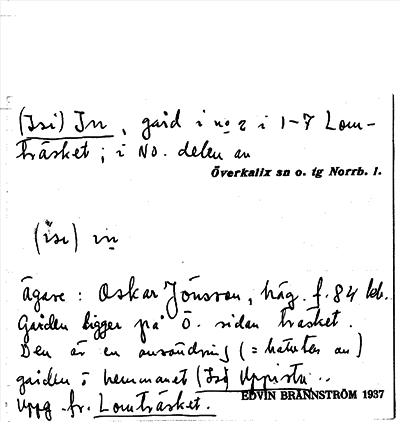 (Isi) In, gård i no 2 i 1-7 Lom-
träsket; i NO. delen av
Överkalix sn o. tg Norrb. l.
(ise) in
Ägare: Oskar Jönsson, häg. f. 84 leb.
Gården ligger på Ö. sidan träsket.
Den är en avsöndring (= hatuten av)
gården ö hemmanet (Isi Uppistu..
Uppg. fr. Lomträsket.
EDVIN BRÄNNSTRÖM 1937